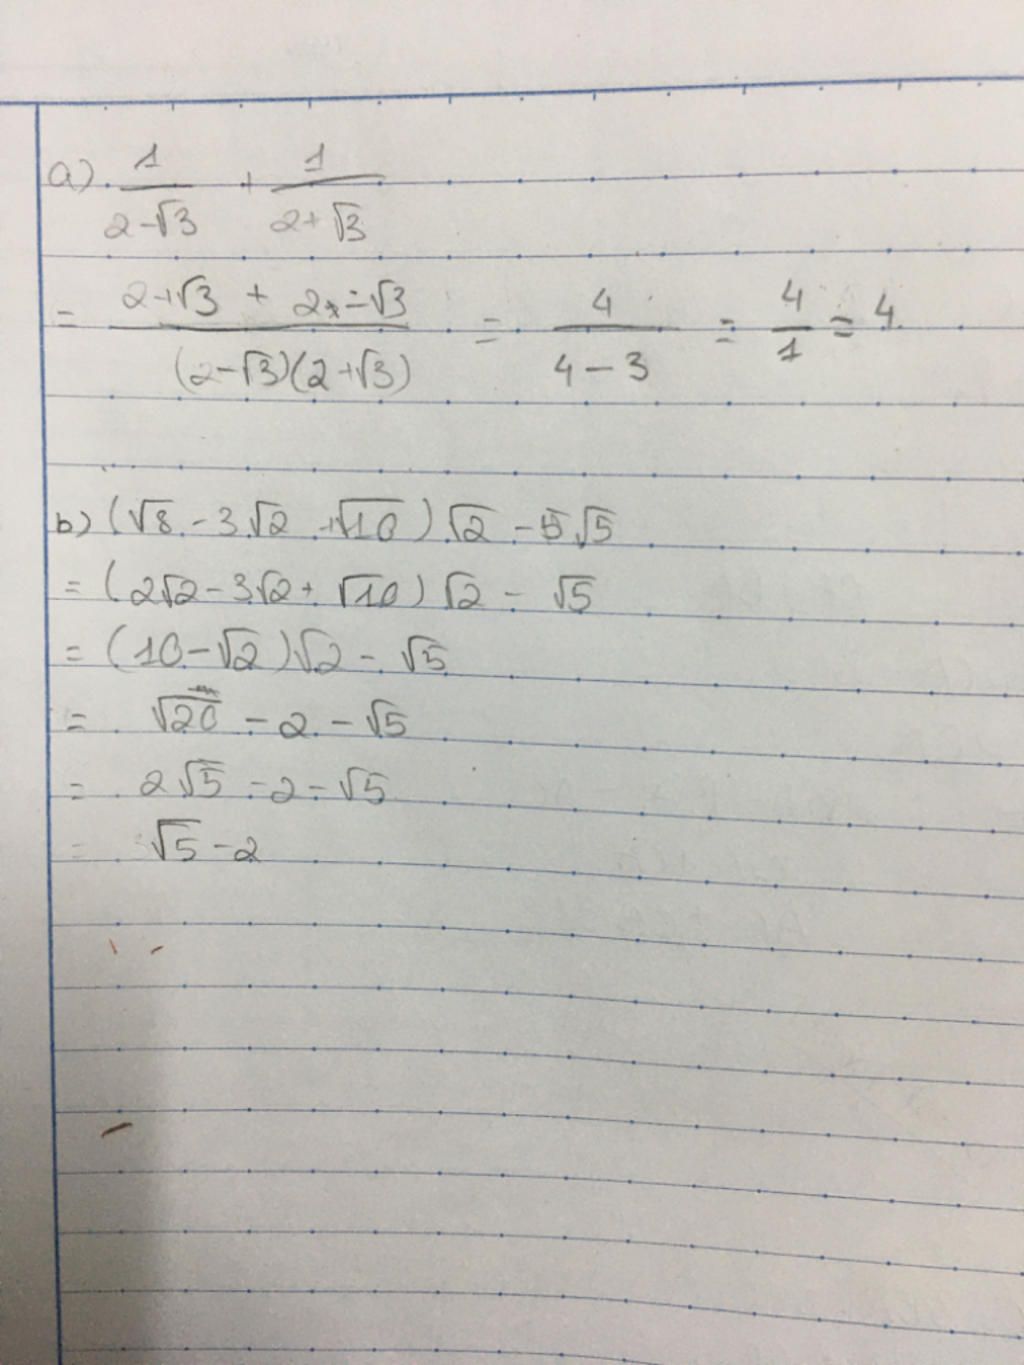 a) 1/(2-√3) + 1/(2+√3)
= (2+√3 + 2-√3)/((2-√3)(2+√3)) = 4/(4-3) = 4/1 = 4
b) (√8 - 3√2 +√10) √2 - 5√5
= (2√2 - 3√2 + √10) √2 - √5
= (10-√2)√2 - √5
= √20 - 2 - √5
= 2√5 - 2 - √5
= √5 - 2